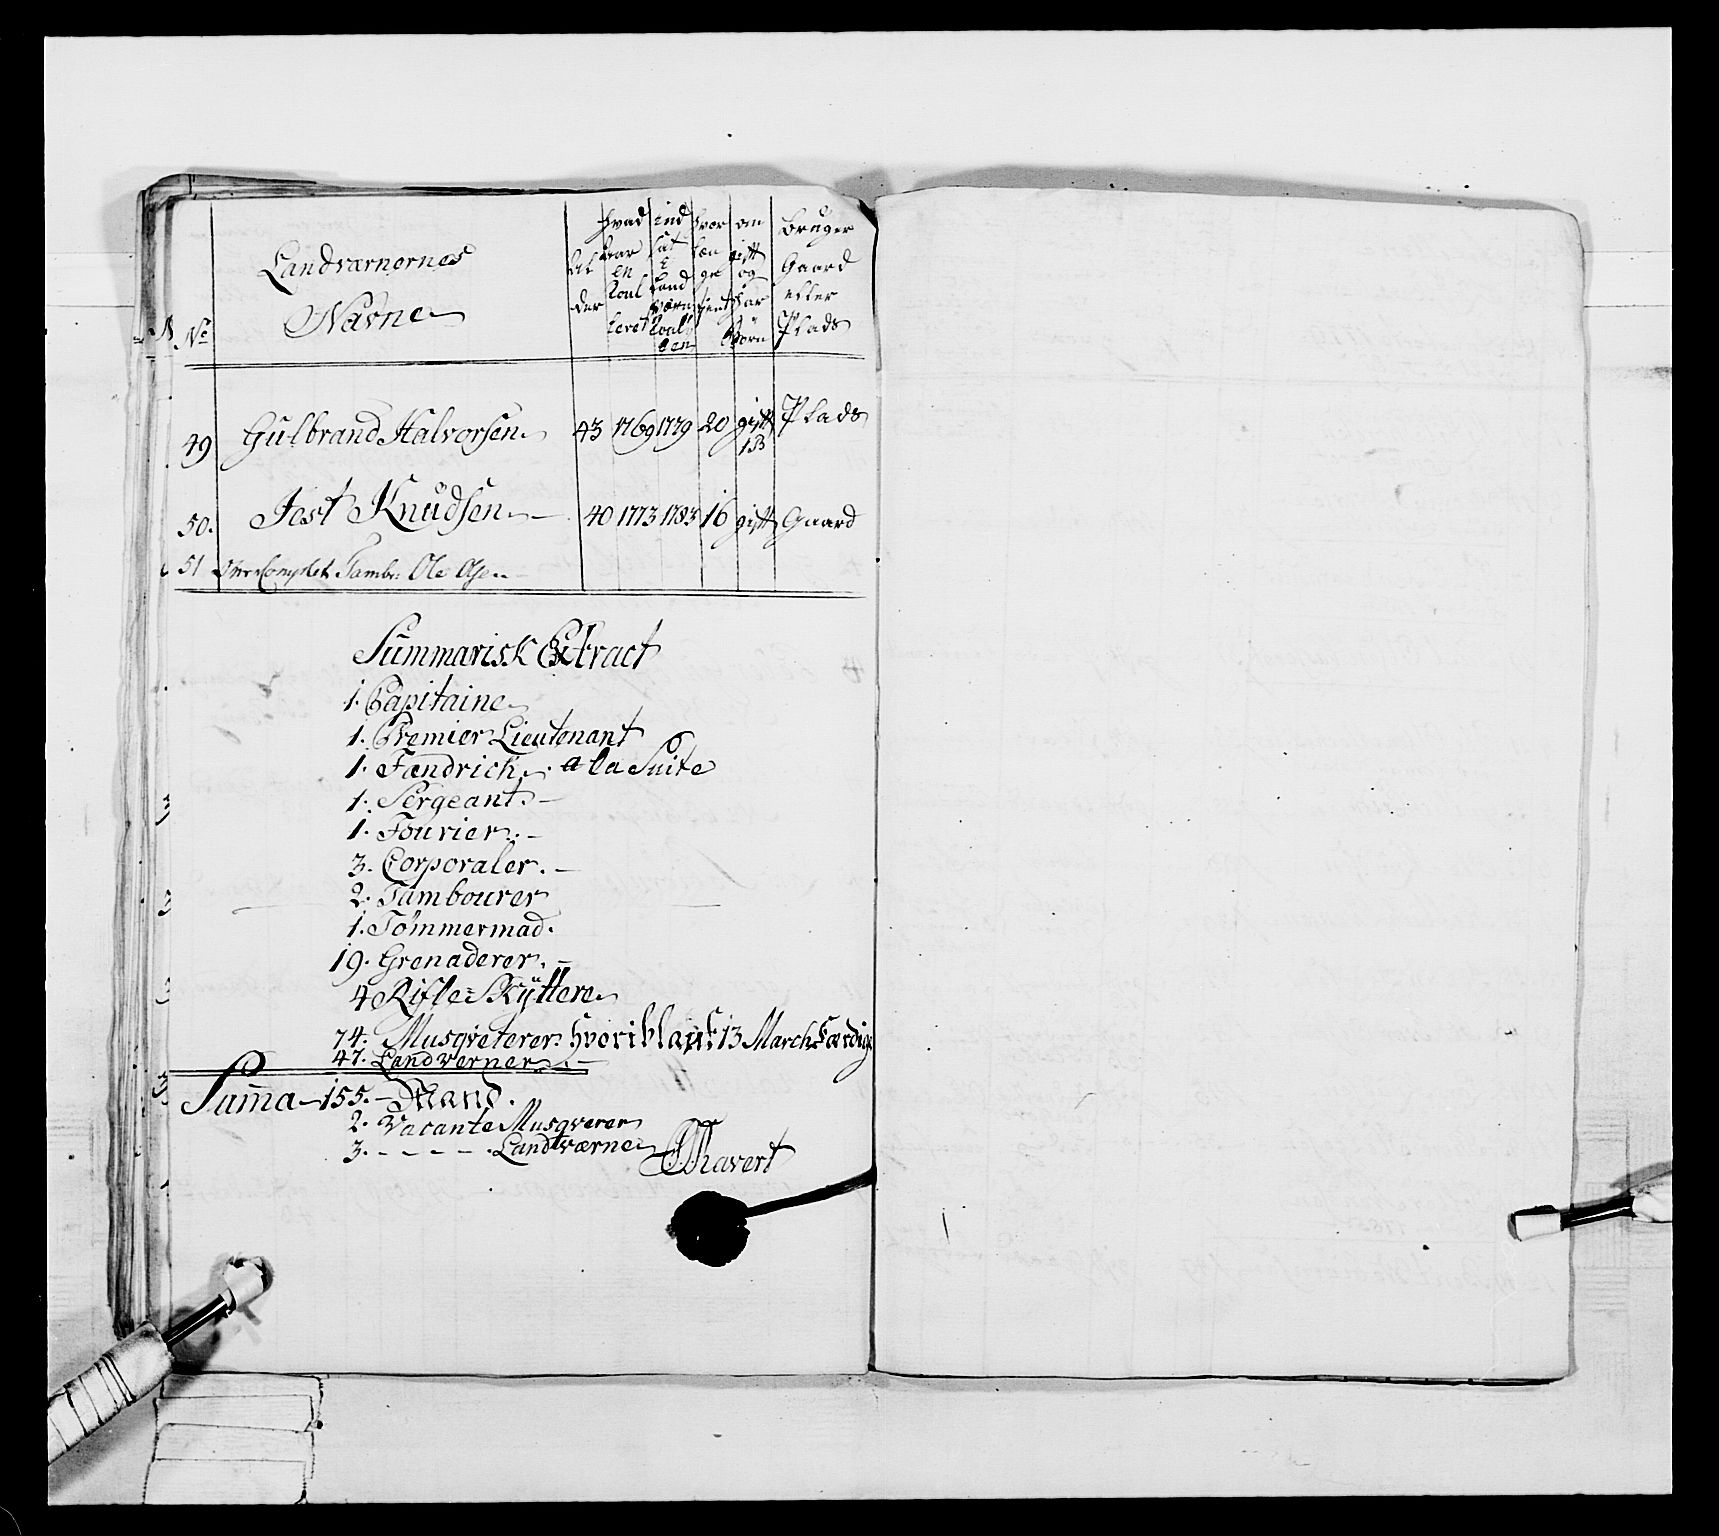 No Landværnernes Navne | Al der | hvad Aar en roul leret | ind sat i Land værn roul len | hvor læn ge tient | om gift og har Børn | bruger Gaard eller Plads
49 Gulbrand Halvorsen 43 1769 1779 20 gift 1 B Plads
50. Jost Knudsen 40 1773 1783 16 gift Gaard
51 Over Complet Tambr: Ole Olsen
Summarisk Extract
1. Capitaine
1. Premier Lieutenant
1. Fændrich a la Suite
1. Sergeant
1. Fourier
3. Corporaler
2. Tambourer
1. Tömmermad.
19. Grenaderer
4 Rifle Skÿttere
74. Musqveterer hvoriblant 13 March Færdige
47. Landverner
Suma 155. Mand.
2. Vacante Musqverer
3. - - - - - Landtværne
Thavert